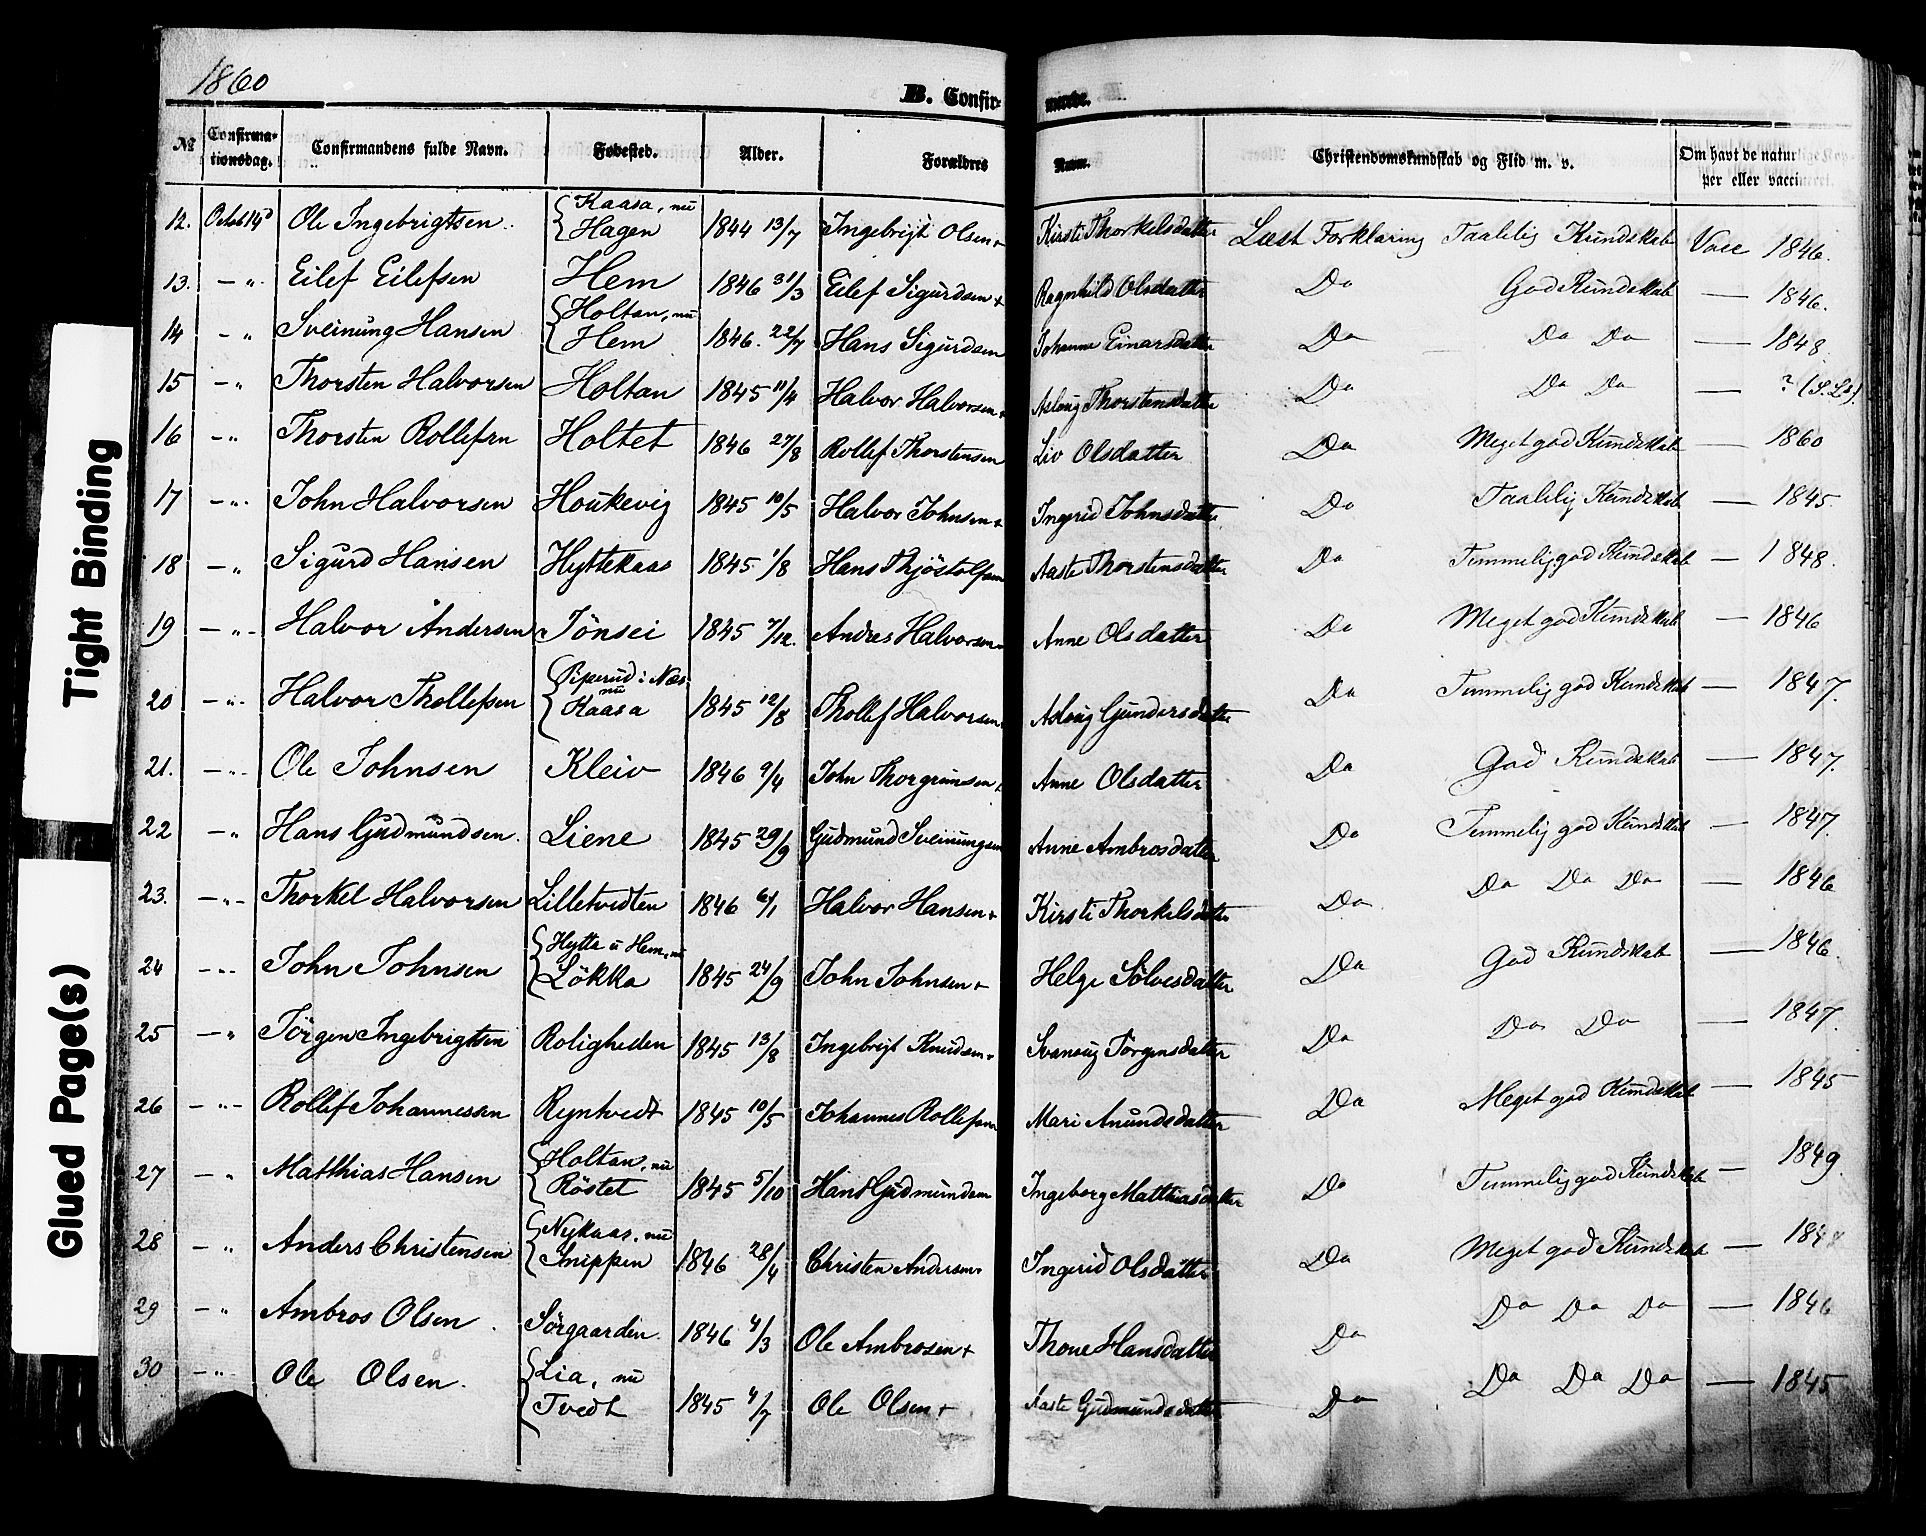 1860
B. Confirmerede.
№ Confirmationsdag. Confirmandens fulde Navn. Fødested. Alder. Forældres Navn. Christendomskundskab og Flid m. v. Om havt de naturlige Kopper eller vaccineret.
12. Octob 14d Ole Ingebrigtsen. Kaasa, nu Hagen 1844 13/7 Ingebrigt Olsen + Kirsti Thorkelsdatter Læst Forklaring Taalelig Kundskab Vacc 1846.
13. — " Eilef Eilefsen Hem 1846 31/3 Eilef Sigurdsen + Ragnhild Olsdatter Do God Kundskab — 1846.
14 — " Sveinung Hansen Holtan, nu Hem 1846. 22/7 Hans Sigurdsen Johanne Einarsdatter Do Do Do — 1848
15 — " Thorsten Halvorsen Holtan 1845 11/4 Halvor Halvorsen + Aslaug Thorstensdatter Do Do Do — ? (S. L.s).
16 — " Thorsten Rollefsen Holtet 1846 27/8 Rollef Thorstensen Liv Olsdatter Do Meget god Kundskab — 1860
17 — " John Halvorsen Houkevig 1845 10/5 Halvor Johnsen + Ingerid Johnsdatter Do Taalelig Kundskab — 1845.
18 — " Sigurd Hansen Hyttekaas 1845 1/8 Hans Thjöstolfsen Aaste Thorstensdatter Do Temmelig god Kundskab — 1848.
19 — " — Halvor Andersen Jönsei 1845 7/12. Andres Halvorsen Anne Olsdatter Do Meget god Kundskab — 1846
20 — " Halvor Thollefsen Piperud i Næs nu Kaasa 1845 12/8 Thollef Halvorsen Aslaug Gundersdatter Do Temmelig god Kundskab — 1847.
21. — " Ole Johnsen Kleiv 1846 9/4 John Thorgrimsen + Anne Olsdatter Do God Kundskab — 1847.
22 — " Hans Gudmundsen. Liene 1845 29/9 Gudmund Sveinungsen Anne Ambrosdatter Do Temmelig god Kundskab — 1847.
23. — " — Thorkel Halvorsen Lilletvedten 1846 6/1 Halvor Hansen + Kirsti Thorkelsdatter Do Do Do Do — 1846
24 — " John Johnsen Hytta u Hem, nu Lökka 1845 24/9 John Johnsen + Helge Sølvesdatter Do God Kundskab — 1846.
25 — " Jörgen Ingebrigtsen Roligheden 1845 13/8 Ingebrigt Knudsen + Svanaug Jörgensdatter Do Do Do — 1847.
26 — " — Rollef Johannessen Ryntvedt 1845 10/5 Johannes Rollefsen Mari Anundsdatter Do Meget god Kundskab — 1845
27 — " Matthias Hansen Holtan, nu Röstet 1845 5/10 Hans Gudmundsen Ingeborg Matthiasdatter Do Temmelig god Kundskab — 1849.
28 — " Anders Christensen Nykaas, nu Snippen 1846 28/4 Christen Andersen + Ingerid Olsdatter Do Meget god Kundskab —
29 — " Ambros Olsen. Sörgaarden. 1846 4/3 Ole Ambrosen + Thone Hansdatter Do Do Do Do — 1846
30 — " Ole Olsen. Lia, nu Tvedt 1845 4/7 Ole Olsen + Aaste Gudmundsdatter Do Do Do Do — 1845
Tight Binding
Glued Page(s)